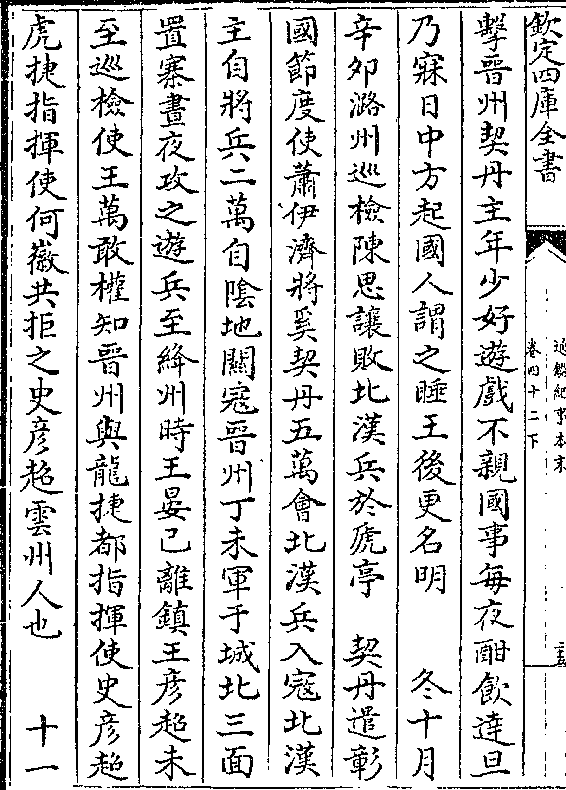 欽定四庫全書
通鑑紀事本末
卷四十二下
擊晉州契丹主年少好遊戲不親國事每夜酣飲達旦
乃寐日中方起國人謂之睡王後更名明　　冬十月
辛夘潞州巡檢陳思讓敗北漢兵於虒亭　契丹遣彰
國節度使蕭伊濟將奚契丹五萬會北漢兵入寇北漢
主自將兵二萬自陰地關寇晉州丁未軍于城北三面
置寨晝夜攻之遊兵至絳州時王晏已離鎮王彥超未
至巡檢使王萬敢權知晉州與龍捷都指揮使史彥超
虎捷指揮使何徽共拒之史彥超雲州人也　　十一